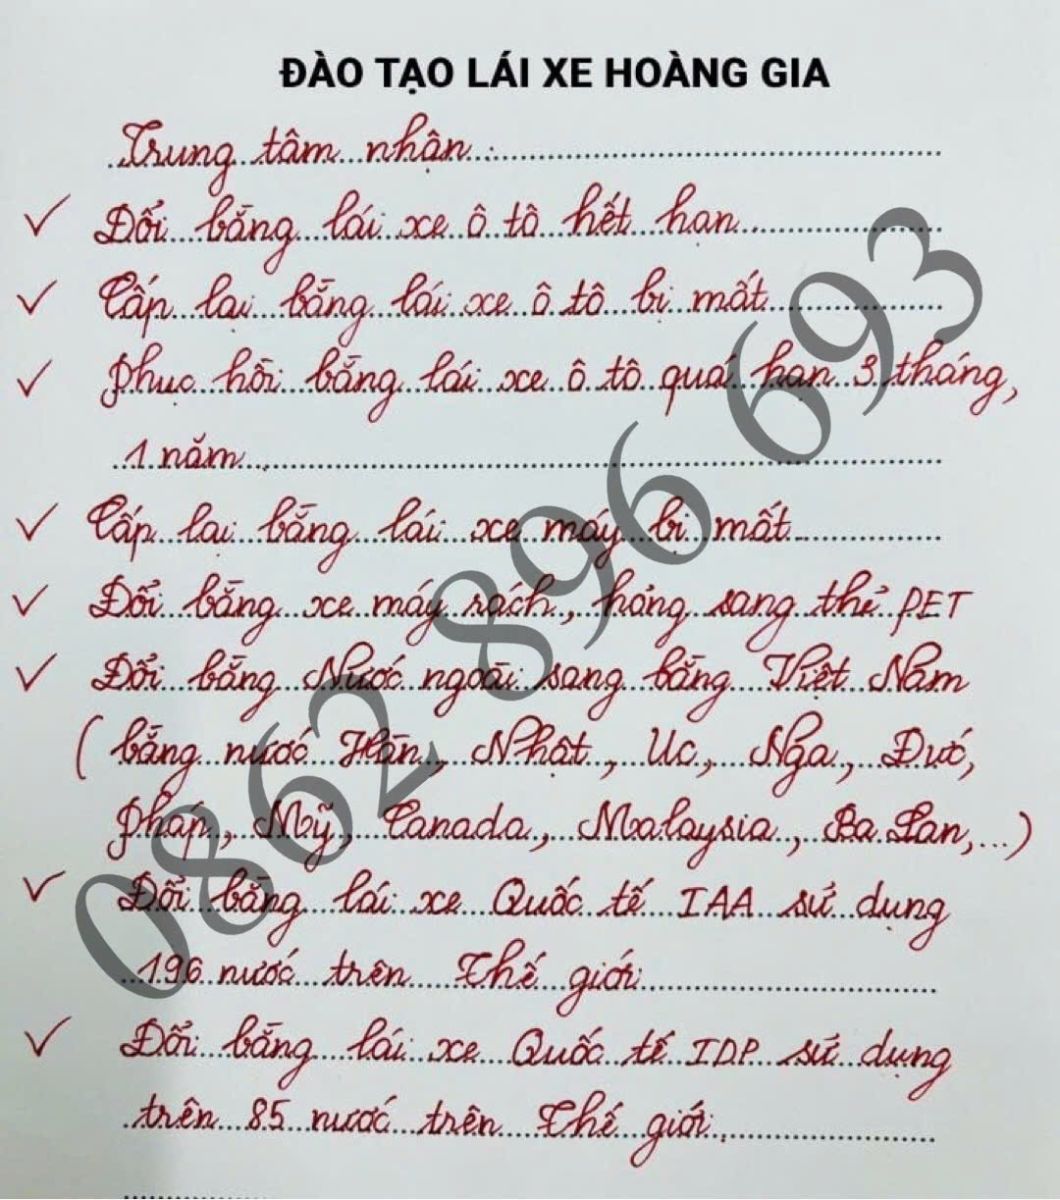 ĐÀO TẠO LÁI XE HOÀNG GIA
Trung tâm nhận:
✓ Đổi bằng lái xe ô tô hết hạn
✓ Cấp lại bằng lái xe ô tô bị mất
✓ Phục hồi bằng lái xe ô tô quá hạn 3 tháng,
1 năm
✓ Cấp lại bằng lái xe máy bị mất
✓ Đổi bằng xe máy rách, hỏng sang thẻ PET
✓ Đổi bằng Nước ngoài sang bằng Việt Nam
(bằng nước Hàn, Nhật, Uc, Nga, Đức,
Pháp, Mỹ, Canada, Malaysia, Ba Lan,...)
✓ Đổi bằng lái xe Quốc tế IAA sử dụng
196 nước trên Thế giới
✓ Đổi bằng lái xe Quốc tế IDP sử dụng
trên 85 nước trên Thế giới
0862 896 693